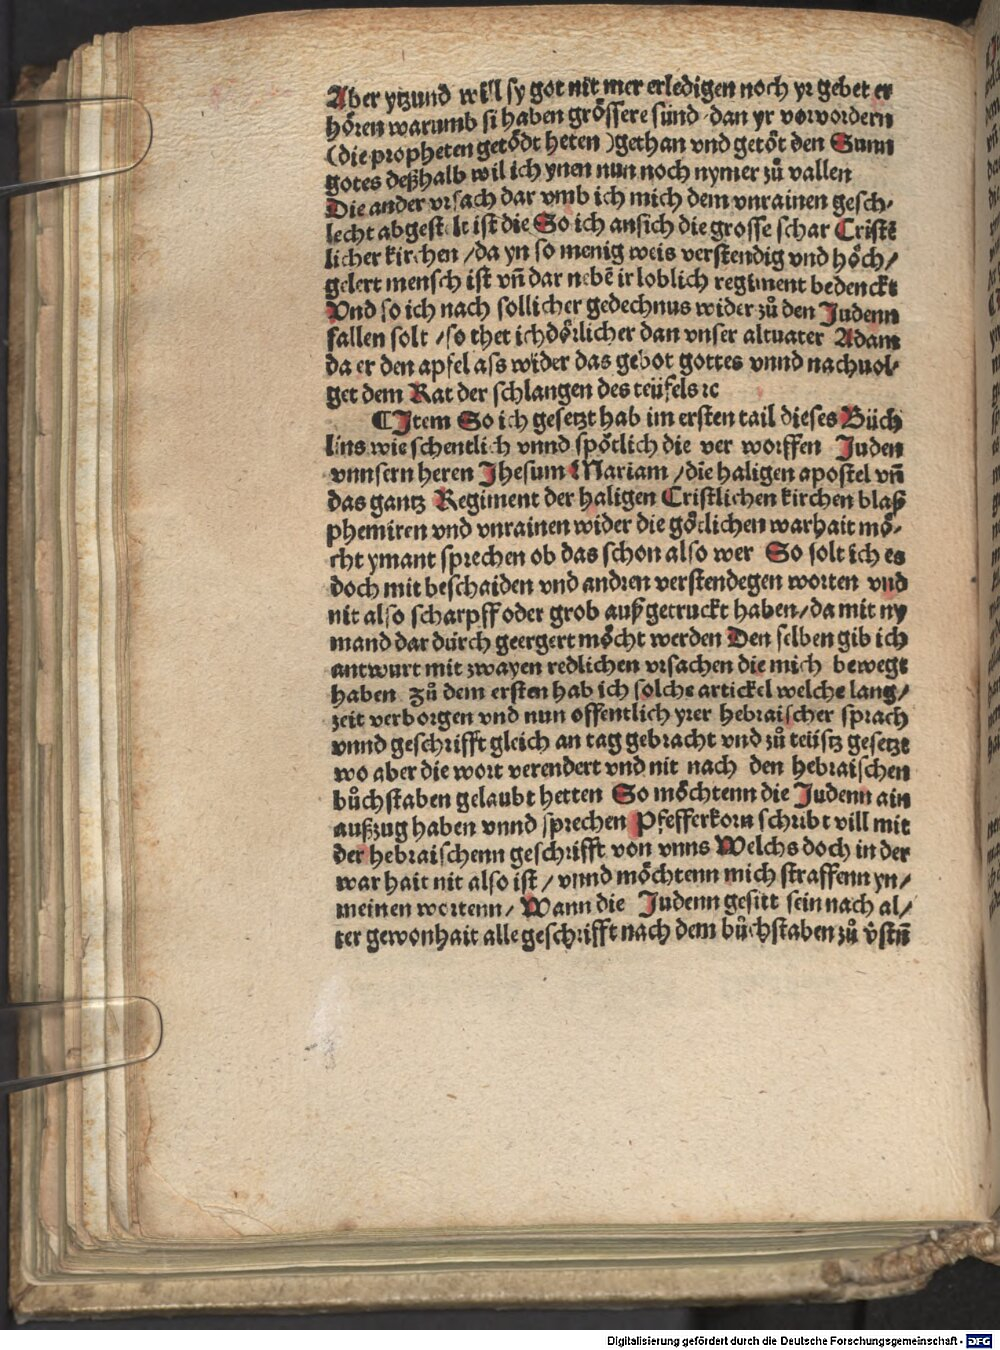 Aber ytzund will sy got nit mer erledigen noch yr gebet er
hören warumb si haben grössere sünd dan yr vorvordern
(die propheten getödt heten )gethan vnd getöt den Sunn
gotes deßhalb wil ich ynen nun noch nymer zů vallen
Die ander vrsach dar vmb ich mich dem vnrainen gesch⸗
lecht abgestelt ist die So ich ansich die grosse schar Cristē
licher kirchen /da yn so menig weis verstendig vnd höch/
gelert mensch ist vñ dar nebē ir loblich regiment bedenckt
Vnd so ich nach sollicher gedechnus wider zů den Judenn
fallen solt /so thet ich dörlicher dan vnser altuater Adam
da er den apfel ass wider das gebot gottes vnnd nachuol⸗
get dem Rat der schlangen des teüfels ꝛc
¶ Item So ich gesetzt hab im ersten tail dieses Büch
lins wie schentlich vnnd spötlich die ver worffen Juden
vnnsern heren Jhesum Mariam /die haligen apostel vñ
das gantz Regiment der haligen Cristlichen kirchen blaß
phemiren vnd vnrainen wider die götlichen warhait mö⸗
cht ymant sprechen ob das schon also wer So solt ich es
doch mit beschaiden vnd andren verstendegen worten vnd
nit also scharpff oder grob auß getruckt haben/da mit ny
mand dar durch geergert möcht werden Den selben gib ich
antwurt mit zwayen redlichen vrsachen die mich bewegt
haben zů dem ersten hab ich solche artickel welche lang/
zeit verborgen vnd nun offentlich yrer hebraischer sprach
vnnd geschrifft gleich an tag gebracht vnd zů teüstz gesetzt
wo aber die wort verendert vnd nit nach den hebraischen
bůchstaben gelaubt hetten So möchtenn die Judenn ain
außzug haben vnnd sprechen Pfefferkorn schribt vill mit
der hebraischenn geschrifft von vnns Welchs doch in der
war hait nit also ist / vnnd möchtenn mich straffenn yn/
meinen wortenn/ Wann die Judenn gesitt sein nach al/
ter gewonhait alle geschrifft nach dem bůchstaben zů v̄stñ
Digitalisierung gefördert durch die Deutsche Forschungsgemeinschaft - DFG